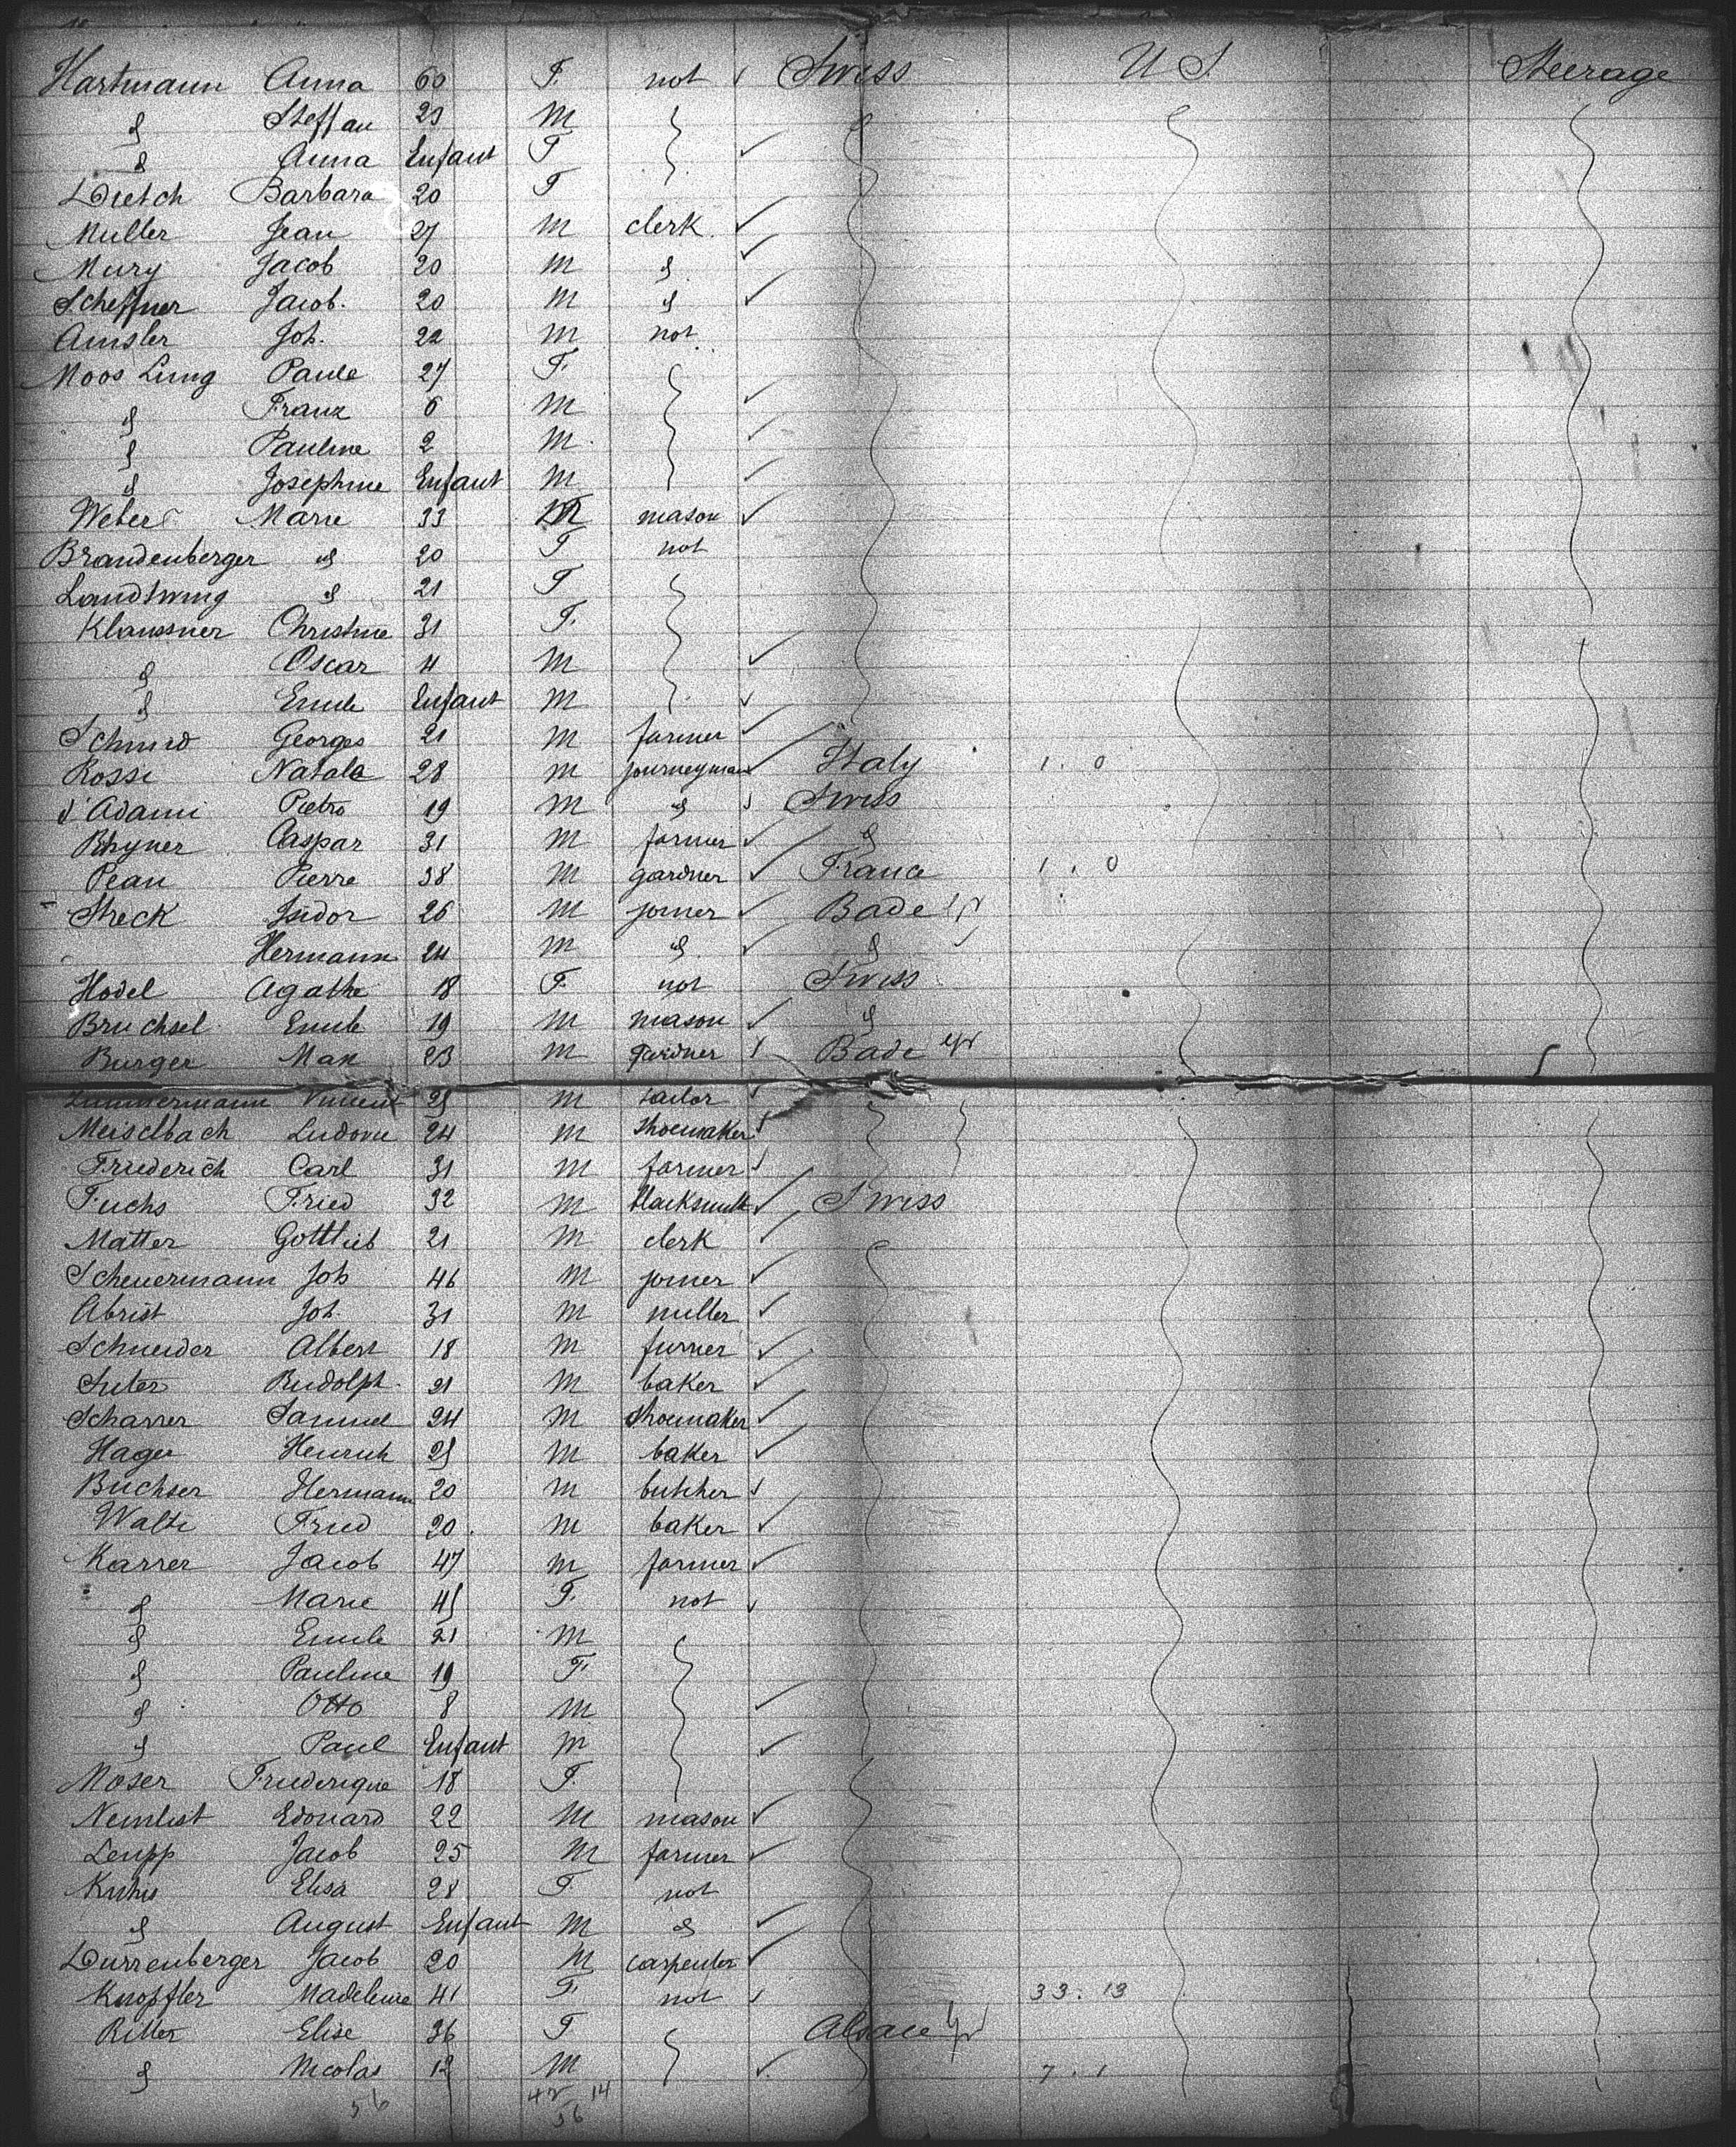 Hartmann Anna 60 F. not Swiss U S. Steerage
" Steffan 23 M
" Anna Enfant F
Dietsch Barbara 20 F
Muller Jean 27 M clerk
Mury Jacob 20 M "
Scheffner Jacob. 20 M "
Amsler Joh. 22 M not
Moos Lung Paula 27 F.
" Franz 6 M
" Pauline 2 M.
" Josephine Enfant M
Weber Marie 33 M mason
Brandenberger " 20 F not
Landtwing " 21 F
Klaussner Christine 31 F.
" Oscar 4 M
" Emile Enfant M
Schmid Georges 21 M farmer
Rossi Natale 28 M journeyman Italy 1. 0
d'Adami Pietro 19 M " Swiss
Rhyner Caspar 31 M farmer "
Pean Pierre 38 M gardner France 1. 0
Steck Isidor 26 M joiner Bade
Hermann 24 M " "
Hodel Agathe 18 F. not Swiss
Bruchsel Emile 19 M mason "
Burger Max 23 M gardner Bade
Zimmermann Vincent 25 M tailor
Meiselbach Ludovic 24 M shoemaker
Friederich Carl 31 M farmer
Fuchs Fried 32 M blacksmith Swiss
Matter Gottlieb 21 M clerk
Scheuermann Joh 46 M joiner
Abrist Joh. 31 M miller
Schneider Albert 18 M turner
Suter Rudolph. 21 M baker
Scharrer Samuel 24 M shoemaker
Hager Heinrich 25 M baker
Buchser Hermann 20 M butcher
Walti Fried 20. M baker
Karrer Jacob 47 M farmer
" Marie 45 F. not
" Emile 21 M
" Pauline 19 F.
" Otto 8 M
" Paul Enfant M
Moser Frederique 18 F.
Nemlist Edouard 22 M mason
Leupp Jacob 25 M farmer
Kuhis Elisa 28 F. not
" August Enfant M "
Durrenberger Jacob 20 M carpenter
Knopfler Madeleine 41 F. not 33. 13
Ritter Elise 36 F Alsace
" Nicolas 12 M 7. 1
56 42 14
56